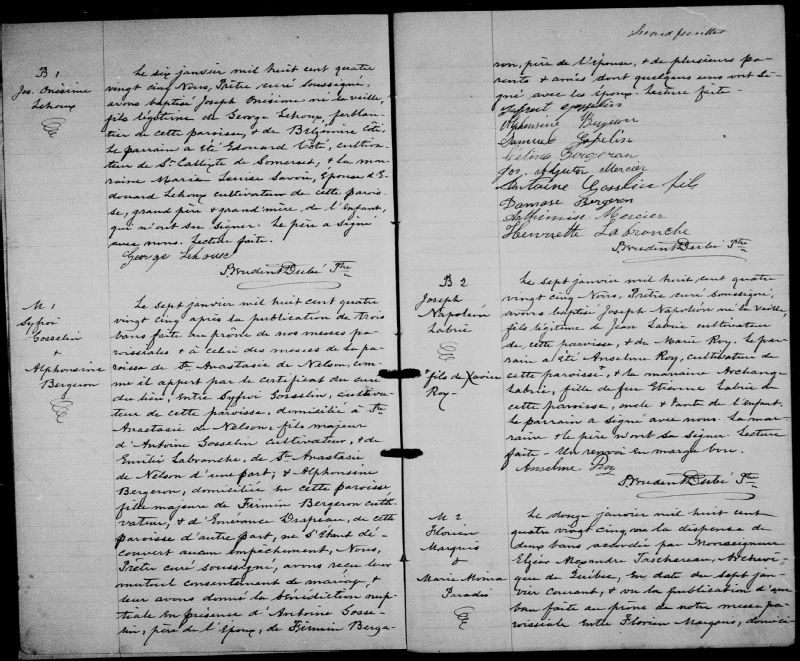 B 1
Jos. Onésime
Lehoux
Le six janvier mil huit cent quatre
vingt cinq Nous, Prêtre curé soussigné,
avons baptisé Joseph Onésime né la veille,
fils légitime de George Lehoux, ferblan-
tier de cette paroisse, & de Belzémire Côté.
Le parrain a été Edouard Côté, cultiva-
teur de St Callixte de Somerset, & la mar-
raine Marie Louise Savoie, Epouse d'E-
douard Lehoux cultivateur de cette parois-
se, grand père & grand'mère de l'enfant,
qui n'ont su signer. Le père a signé
avec nous. Lecture faite.
George Lehoux
Prudent Dubé Ptre
M 1
Gosselin
&
Alphonsine
Bergeron
Le sept janvier mil huit cent quatre
vingt cinq après la publication de trois
bans faite au prône de nos messes pa-
roissiales & à celui des messes de la pa-
roisse de Ste Anastasie de Nelson, com-
me il appert par le certificat du curé
du lieu, Entre Gosselin, cultiva-
teur de cette paroisse, domicilié à Ste
Anastasie de Nelson, fils majeur
d'Antoine Gosselin cultivateur, & de
Emilie Labranche, de Ste Anastasie
de Nelson d'une part; & Alphonsine
Bergeron, domiciliée en cette paroisse
fille majeure de Firmin Bergeron culti-
vateur, & d'Emérance Drapeau, de cette
paroisse d'autre part, ne s'étant dé-
couvert aucun empêchement, Nous,
Prêtre curé soussigné, avons reçu leur
mutuel consentement de mariage, &
leur avons donné la bénédiction nup-
tiale en présence d'Antoine Gosse-
lin, père de l'époux, de Firmin Berge-
Second feuillet
ron, père de l'épouse, & de plusieurs pa-
rents & amis dont quelques uns ont si-
gné avec les époux. Lecture faite.
Alphonsine Bergeron
Bergeron
Jos. Mercier
Antoine Gosselin fils
Damase Bergeron
Mercier
Henriette Labranche
Prudent Dubé Ptre
B 2
Joseph
Napoléon
Labrie
Le sept janvier mil huit cent quatre
vingt cinq Nous, Prêtre curé soussigné,
avons baptisé Joseph Napoléon né la veille,
fils légitime de Jean Labrie cultivateur
de cette paroisse, & de Marie Roy. Le par-
rain a été Anselme Roy, cultivateur de
cette paroisse*, & la marraine Archange
Labrie, fille de feu Etienne Labrie de
cette paroisse, oncle & tante de l'enfant.
Le parrain a signé avec nous. La mar-
raine & le père n'ont su signer. Lecture
faite. Un renvoi en marge bon.
*fils de Xavier
Roy.
Anselme Roy
Prudent Dubé Ptre
M 2
Florien
Marquis
&
Marie
Paradis
Le douze janvier mil huit cent
quatre vingt cinq, vu la dispense de
deux bans accordée par Monseigneur
Elzéar Alexandre Taschereau, Archevê-
que de Québec, en date du sept jan-
vier courant, & vu la publication d'un
ban faite au prône de notre messe pa-
roissiale Entre Florien Marquis, domici-